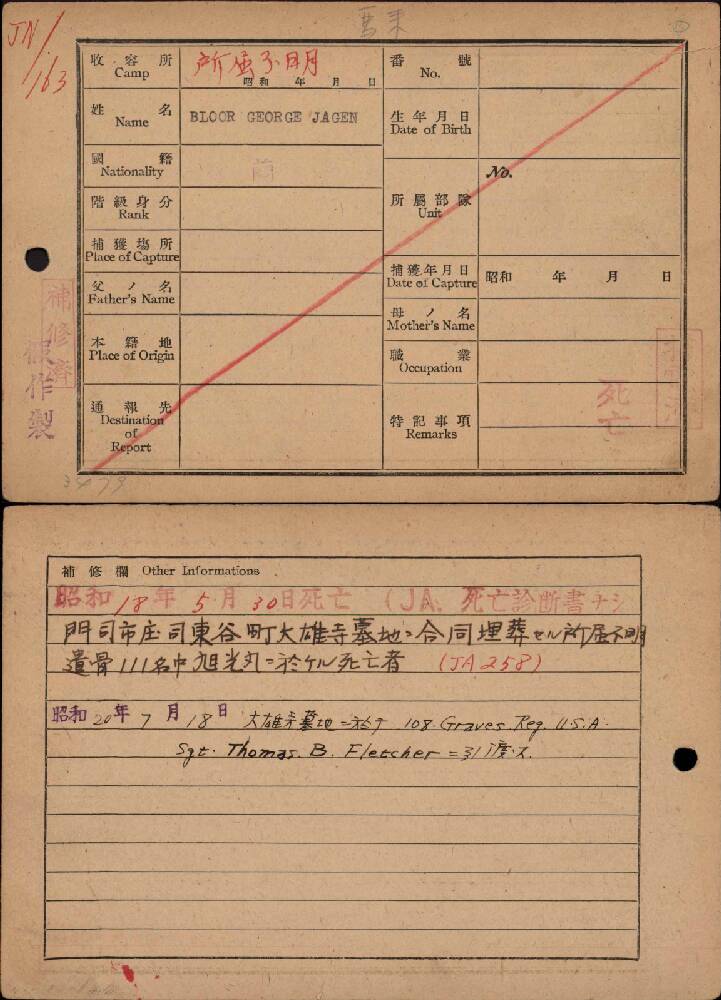 JN/163
收容所
Camp
所属不明
昭和 年 月 日
番號
No.
姓名
Name
BLOOR GEORGE JAGEN
生年月日
Date of Birth
國籍
Nationality
階級身分
Rank
所屬部隊
Unit
No.
捕獲場所
Place of Capture
捕獲年月日
Date of Capture
昭和 年 月 日
父ノ名
Father's Name
母ノ名
Mother's Name
本籍地
Place of Origin
職業
Occupation
通報先
Destination
of
Report
特記事項
Remarks
補修濟
假作製
死亡
補修欄 Other Informations
昭和18年5月30日死亡 (JA. 死亡診断書ナシ
門司市庄司東谷町大雄寺墓地ニ合同埋葬セル所属不明
遺骨111名中旭光丸ニ於ケル死亡者 (JA258)
昭和20年7月18日 大雄寺墓地ニ於テ 108. Graves. Reg. U.S.A.
Sgt. Thomas. B. Fletcher =引渡ス.